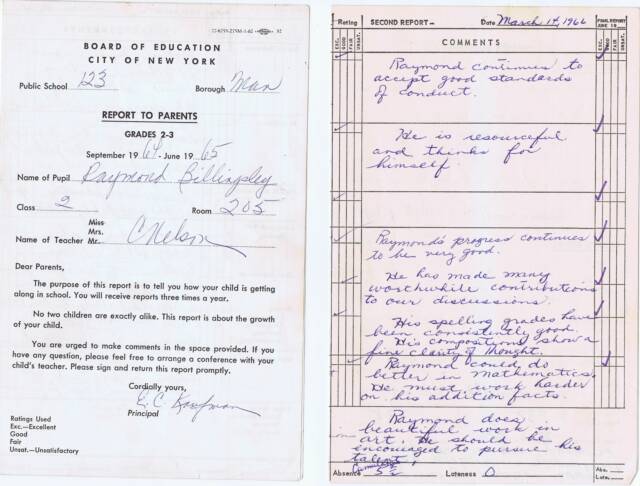 BOARD OF EDUCATION
CITY OF NEW YORK
Public School 123 Borough Man
REPORT TO PARENTS
GRADES 2-3
September 1964-June 1965
Name of Pupil Raymond Billingsley
Class 2 Room 205
Miss
Mrs.
Name of Teacher Mr. C Nelson
Dear Parents,
The purpose of this report is to tell you how your child is getting
along in school. You will receive reports three times a year.
No two children are exactly alike. This report is about the growth
of your child.
You are urged to make comments in the space provided. If you
have any question, please feel free to arrange a conference with your
child's teacher. Please sign and return this report promptly.
Cordially yours,
E. C. Kaufman
Principal
Ratings Used
Exc.—Excellent
Good
Fair
Unsat.—Unsatisfactory
Rating SECOND REPORT— Date March 14, 1966 FINAL REPORT
JUNE
EXC. GOOD FAIR UNSAT. COMMENTS EXC. GOOD FAIR UNSAT.
Raymond continues to
accept good standards
of conduct.
He is resourceful
and thinks for
himself.
Raymond's progress continues
to be very good.
He has made many
worthwhile contributions
to our discussions.
His spelling grades have
been consistently good.
His compositions show a
fine clarity of thought.
Raymond could do
better in Mathematics.
He must work harder
on his addition facts.
Raymond does
beautiful work in
art. He should be
encouraged to pursue his
talent.
Absence Lateness 0 Abs.
Late.